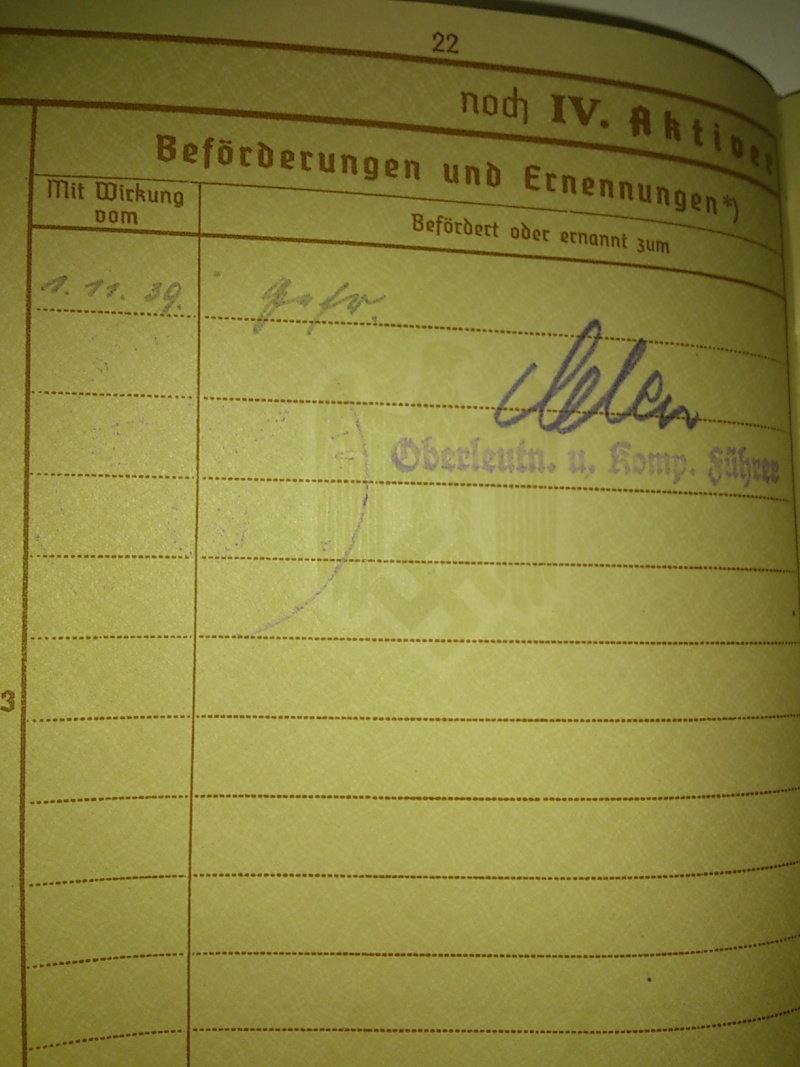 22
noch IV. Aktiver
Beförderungen und Ernennungen*)
Mit Wirkung
vom
Befördert oder ernannt zum
1. 11. 39.
Gefr.
Oberleutn. u. Komp. Führer
3